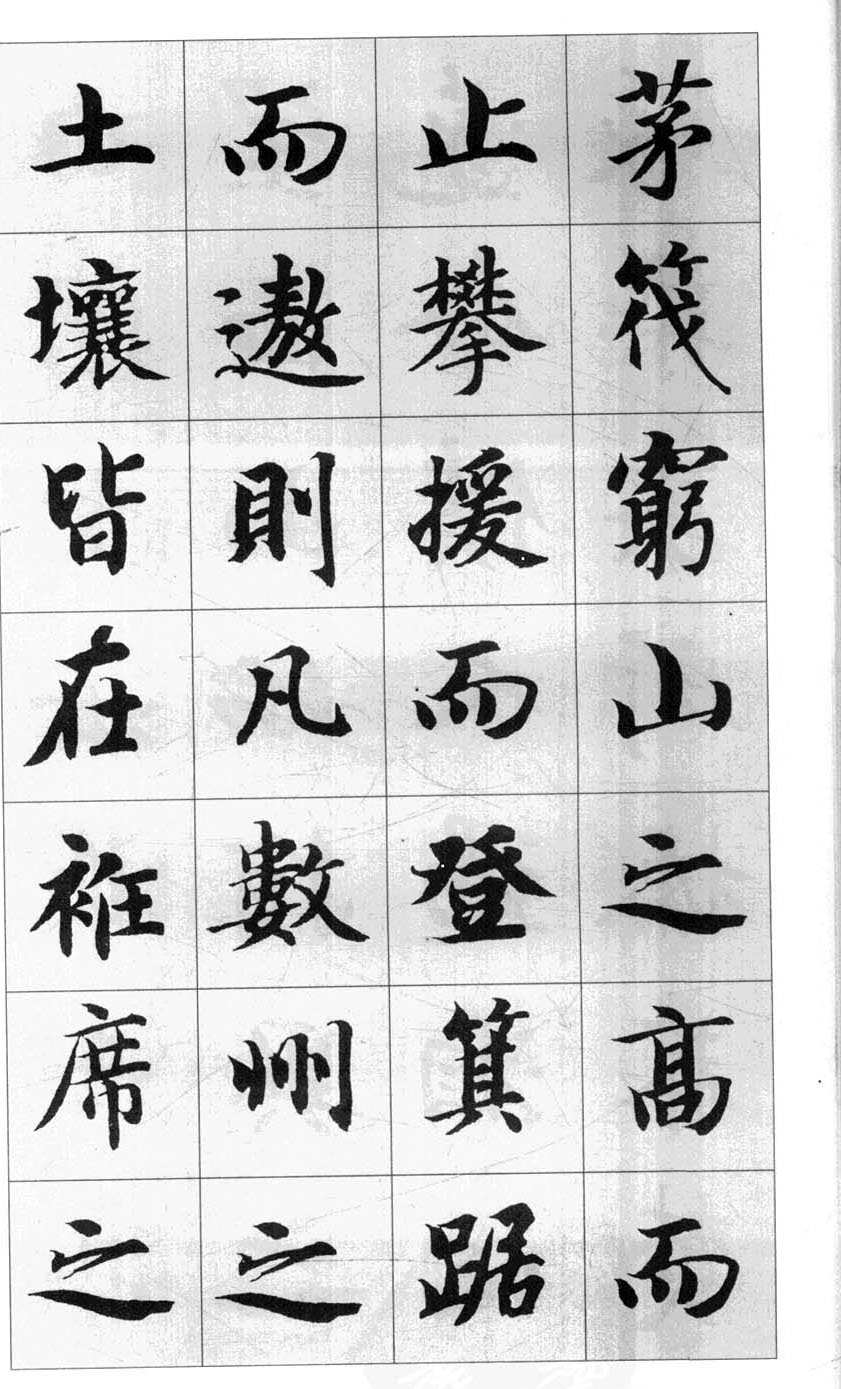 茅筏窮山之高而
止攀援而登箕踞
而遨則凡數州之
土壤皆在袵席之